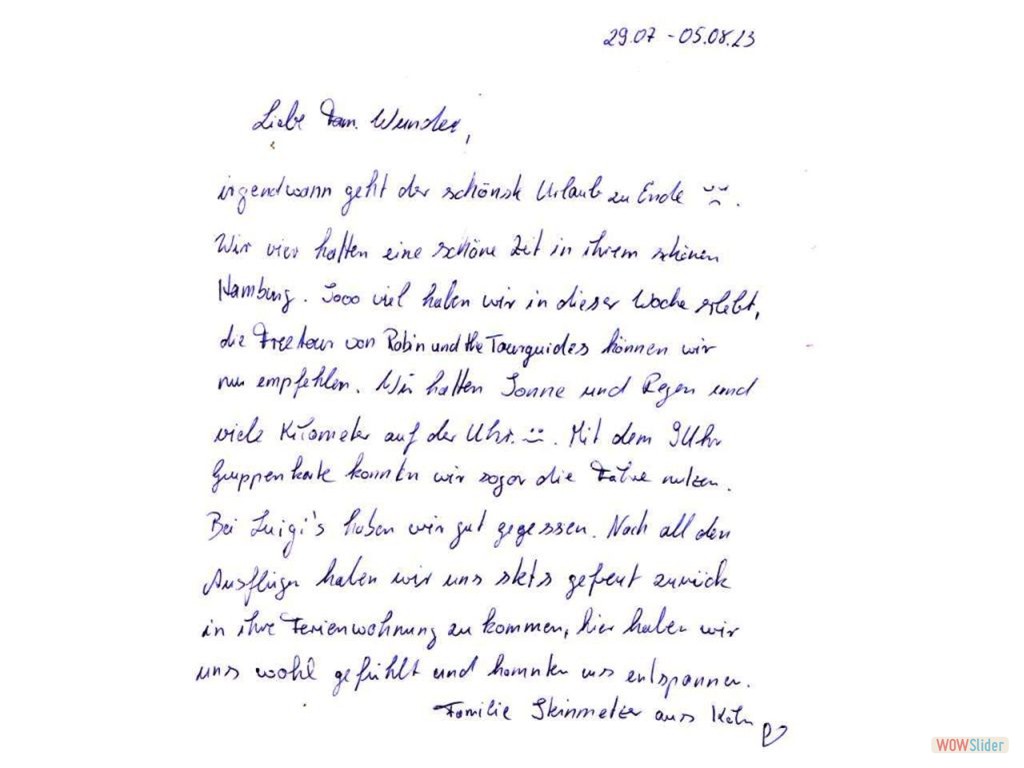 29.07 - 05.08.23
Liebe Fam. Wunder,
irgendwann geht der schönste Urlaub zu Ende
Wir vier hatten eine schöne Zeit in ihrem schönen
Hamburg. Sooo viel haben wir in dieser Woche erlebt,
die Freetour von Robin und the Tourguides können wir
nur empfehlen. Wir hatten Sonne und Regen und
viele Kilometer auf der Uhr. Mit dem 9 Uhr
Gruppenkarte konnten wir sogar die Fähre nutzen.
Bei Luigi's haben wir gut gegessen. Nach all den
Ausflügen haben wir uns stets gefreut zurück
in ihre Ferienwohnung zu kommen, hier haben wir
uns wohl gefühlt und konnten uns entspannen.
Familie Steinmetzer aus Köln
WOWSlider